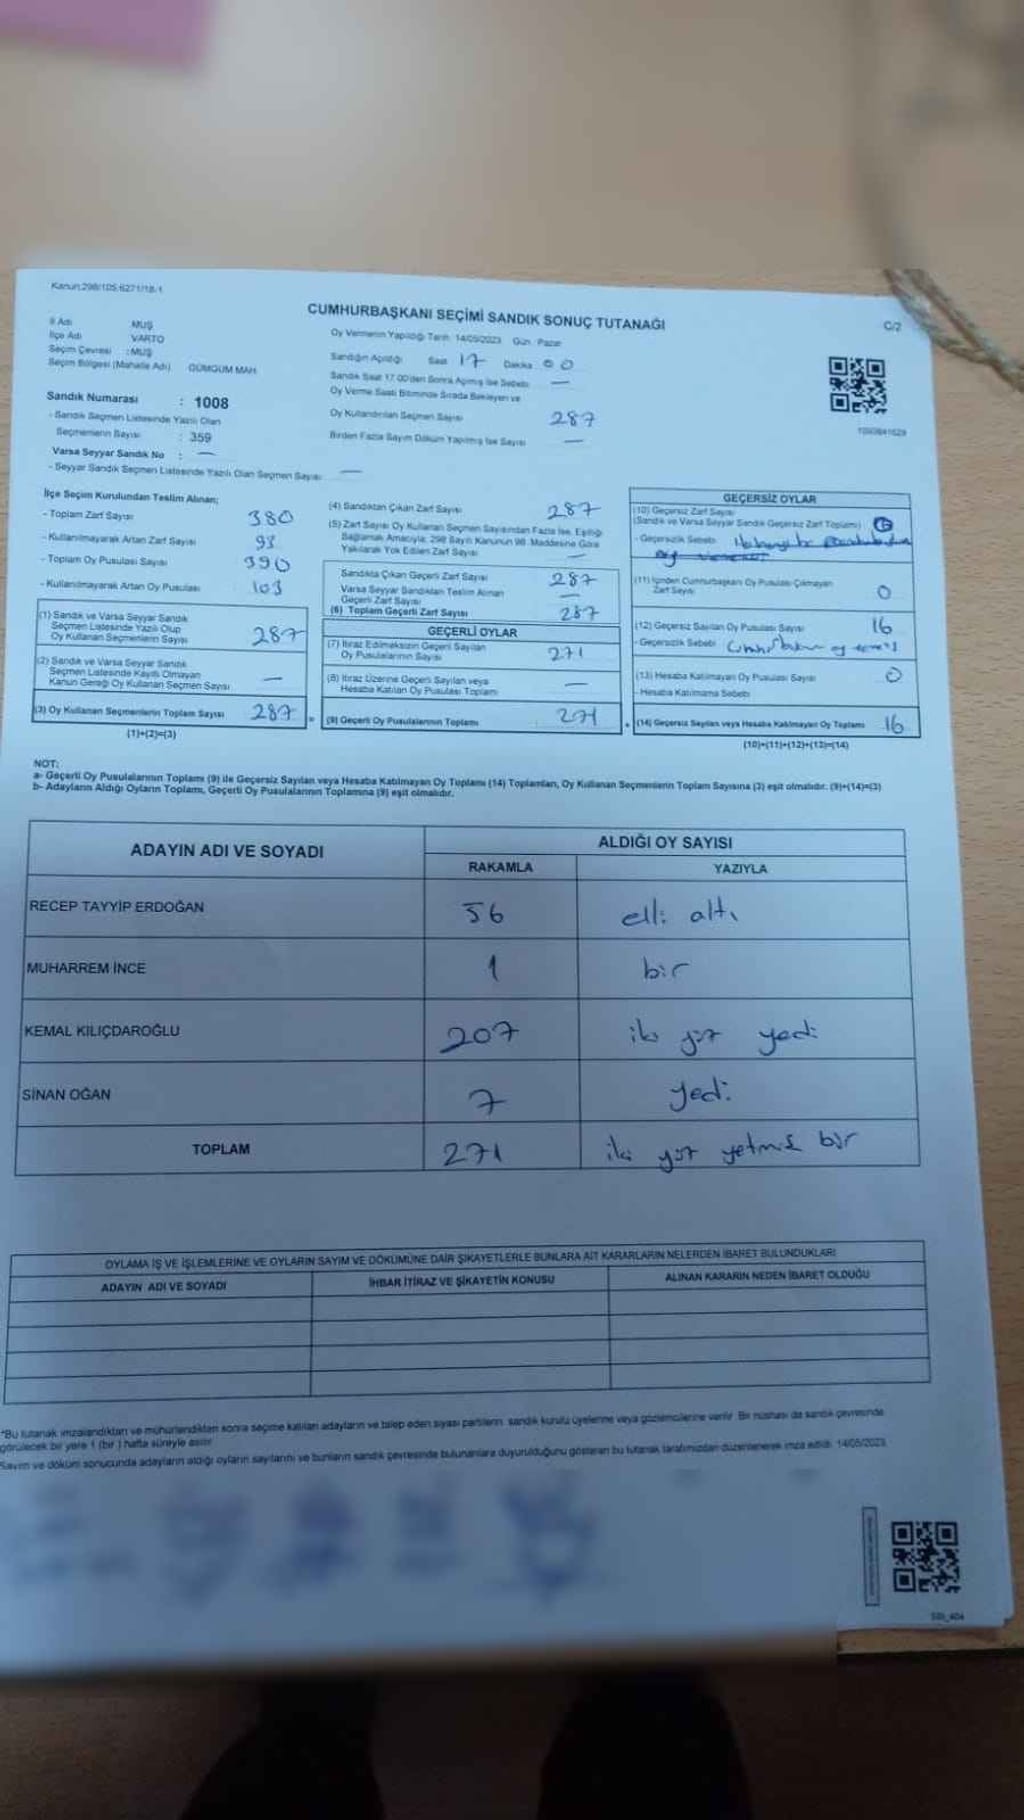 Kanun:298/105;6271/18-1
CUMHURBAŞKANI SEÇİMİ SANDIK SONUÇ TUTANAĞI
C/2
İl Adı MUŞ
İlçe Adı VARTO
Seçim Çevresi : MUŞ
Seçim Bölgesi (Mahalle Adı) GÜMGÜM MAH.
Sandık Numarası : 1008
- Sandık Seçmen Listesinde Yazılı Olan
Seçmenlerin Sayısı : 359
Varsa Seyyar Sandık No : —
- Seyyar Sandık Seçmen Listesinde Yazılı Olan Seçmen Sayısı —
Oy Vermenin Yapıldığı Tarih: 14/05/2023 Gün: Pazar
Sandığın Açıldığı Saat 17 Dakika 00
Sandık Saat 17.00'den Sonra Açılmış İse Sebebi —
Oy Verme Saati Bitiminde Sırada Bekleyen ve
Oy Kullandırılan Seçmen Sayısı 287
Birden Fazla Sayım Döküm Yapılmış İse Sayısı —
İlçe Seçim Kurulundan Teslim Alınan;
- Toplam Zarf Sayısı 380
- Kullanılmayarak Artan Zarf Sayısı 93
- Toplam Oy Pusulası Sayısı 390
- Kullanılmayarak Artan Oy Pusulası 103
(1) Sandık ve Varsa Seyyar Sandık
Seçmen Listesinde Yazılı Olup
Oy Kullanan Seçmenlerin Sayısı 287
(2) Sandık ve Varsa Seyyar Sandık
Seçmen Listesinde Kayıtlı Olmayan
Kanun Gereği Oy Kullanan Seçmen Sayısı —
(3) Oy Kullanan Seçmenlerin Toplam Sayısı 287
(1)+(2)=(3)
(4) Sandıktan Çıkan Zarf Sayısı 287
(5) Zarf Sayısı Oy Kullanan Seçmen Sayısından Fazla İse, Eşitliği
Sağlamak Amacıyla, 298 Sayılı Kanunun 98. Maddesine Göre
Yakılarak Yok Edilen Zarf Sayısı —
Sandıkta Çıkan Geçerli Zarf Sayısı 287
Varsa Seyyar Sandıktan Teslim Alınan
Geçerli Zarf Sayısı —
(6) Toplam Geçerli Zarf Sayısı 287
GEÇERLİ OYLAR
(7) İtiraz Edilmeksizin Geçerli Sayılan
Oy Pusulalarının Sayısı 271
(8) İtiraz Üzerine Geçerli Sayılan veya
Hesaba Katılan Oy Pusulası Toplamı —
(9) Geçerli Oy Pusulalarının Toplamı 271
GEÇERSİZ OYLAR
(10) Geçersiz Zarf Sayısı
(Sandık ve Varsa Seyyar Sandık Geçersiz Zarf Toplamı)
- Geçersizlik Sebebi
(11) İçinden Cumhurbaşkanı Oy Pusulası Çıkmayan
Zarf Sayısı 0
(12) Geçersiz Sayılan Oy Pusulası Sayısı 16
- Geçersizlik Sebebi
(13) Hesaba Katılmayan Oy Pusulası Sayısı 0
- Hesaba Katılmama Sebebi
(14) Geçersiz Sayılan veya Hesaba Katılmayan Oy Toplamı 16
(10)+(11)+(12)+(13)=(14)
NOT:
a- Geçerli Oy Pusulalarının Toplamı (9) ile Geçersiz Sayılan veya Hesaba Katılmayan Oy Toplamı (14) Toplamları, Oy Kullanan Seçmenlerin Toplam Sayısına (3) eşit olmalıdır. (9)+(14)=(3)
b- Adayların Aldığı Oyların Toplamı, Geçerli Oy Pusulalarının Toplamına (9) eşit olmalıdır.
ADAYIN ADI VE SOYADI ALDIĞI OY SAYISI
RAKAMLA YAZIYLA
RECEP TAYYİP ERDOĞAN 56 elli altı
MUHARREM İNCE 1 bir
KEMAL KILIÇDAROĞLU 207 iki yüz yedi
SİNAN OĞAN 7 yedi
TOPLAM 271 iki yüz yetmiş bir
OYLAMA İŞ VE İŞLEMLERİNE VE OYLARIN SAYIM VE DÖKÜMÜNE DAİR ŞİKAYETLERLE BUNLARA AİT KARARLARIN NELERDEN İBARET BULUNDUKLARI
ADAYIN ADI VE SOYADI İHBAR İTİRAZ VE ŞİKAYETİN KONUSU ALINAN KARARIN NEDEN İBARET OLDUĞU
*Bu tutanak imzalandıktan ve mühürlendikten sonra seçime katılan adayların ve talep eden siyasi partilerin sandık kurulu üyelerine veya gözlemcilerine verilir. Bir nüshası da sandık çevresinde
görülecek bir yere 1 (bir) hafta süreyle asılır.
Sayım ve döküm sonucunda adayların aldığı oyların sayılarını ve bunların sandık çevresinde bulunanlara duyurulduğunu gösteren bu tutanak tarafımızdan düzenlenerek imza edildi. 14/05/2023